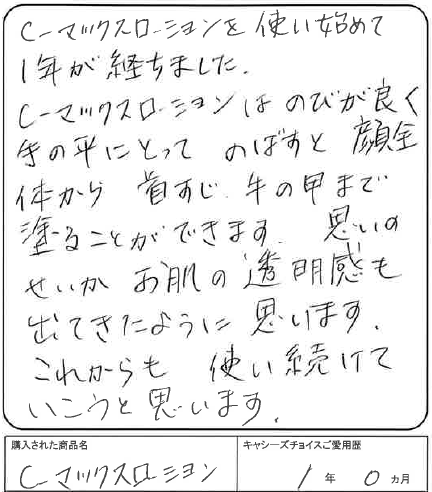 C-マックスローションを使い始めて
1年が経ちました。
C-マックスローションはのびが良く
手の平にとって のばすと 顔全
体から 首すじ、手の甲まで
塗ることができます。 思いの
せいか お肌の透明感も
出てきたように 思います。
これからも 使い続けて
いこうと思います。
購入された商品名
キャシーズチョイスご愛用歴
C-マックスローション
1年 0ヵ月